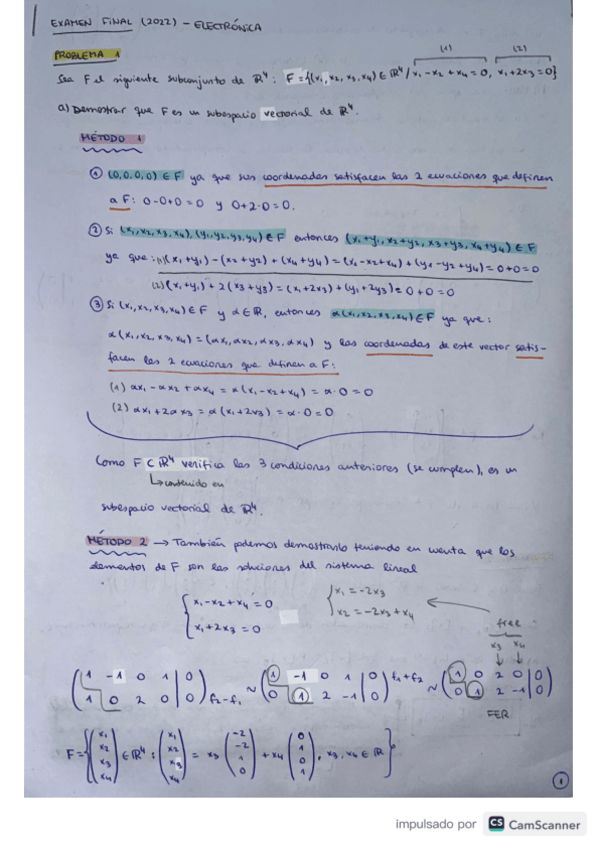 EXAMEN FINAL (2022) - ELECTRÓNICA
PROBLEMA 1
(1) (2)
Sea F el siguiente subconjunto de ℝ⁴: F={(x₁,x₂,x₃,x₄)∈ℝ⁴/x₁-x₂+x₄=0, x₁+2x₃=0}
a) Demostrar que F es un subespacio vectorial de ℝ⁴.
MÉTODO 1
① (0,0,0,0)∈F ya que sus coordenadas satisfacen las 2 ecuaciones que definen
a F: 0-0+0=0 y 0+2·0=0.
② Si (x₁,x₂,x₃,x₄),(y₁,y₂,y₃,y₄)∈F entonces (x₁+y₁,x₂+y₂,x₃+y₃,x₄+y₄)∈F
ya que: (1)(x₁+y₁)-(x₂+y₂)+(x₄+y₄)=(x₁-x₂+x₄)+(y₁-y₂+y₄)=0+0=0
(2)(x₁+y₁)+2(x₃+y₃)=(x₁+2x₃)+(y₁+2y₃)=0+0=0
③ Si (x₁,x₂,x₃,x₄)∈F y α∈ℝ, entonces α(x₁,x₂,x₃,x₄)∈F ya que:
α(x₁,x₂,x₃,x₄)=(αx₁,αx₂,αx₃,αx₄) y las coordenadas de este vector satis-
facen las 2 ecuaciones que definen a F:
(1) αx₁-αx₂+αx₄=α(x₁-x₂+x₄)=α·0=0
(2) αx₁+2αx₃=α(x₁+2x₃)=α·0=0
Como F⊂ℝ⁴ verifica las 3 condiciones anteriores (se cumplen), es un
↳contenido en
subespacio vectorial de ℝ⁴.
MÉTODO 2 → También podemos demostrarlo teniendo en cuenta que los
elementos de F son las soluciones del sistema lineal
{x₁-x₂+x₄=0 {x₁=-2x₃
x₁+2x₃=0 x₂=-2x₃+x₄ ←
free
x₃ x₄
(1 -1 0 1|0) ~ (1 -1 0 1|0) f₁+f₂ ~ (1 0 2 0|0)
(1 0 2 0|0) f₂-f₁ (0 1 2 -1|0) (0 1 2 -1|0)
FER
F={(x₁ x₂ x₃ x₄)∈ℝ⁴: (x₁ x₂ x₃ x₄)=x₃(-2 -2 1 0)+x₄(0 1 0 1), x₃,x₄∈ℝ}
①
impulsado por CS CamScanner